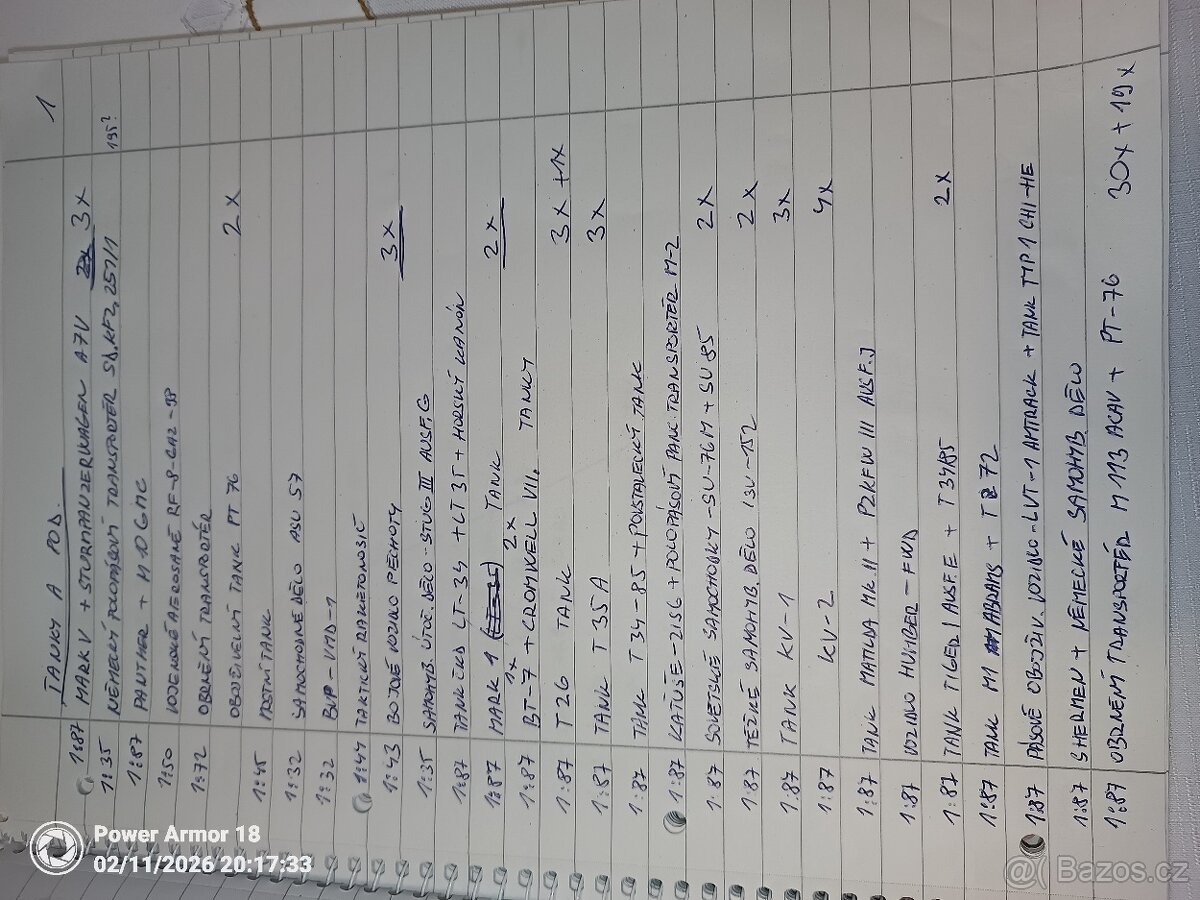 TANKY A POD. 1
1:87 MARK V + STURMPANZERWAGEN A7V 3x
1:35 NĚMECKÝ POLOPÁSOVÝ TRANSPORTÉR SD.KFZ. 251/1 195?
1:87 PANTHER + M10 GMC
1:50 VOJENSKÉ AEROSANĚ RF-8-GAZ-98
1:72 OBRNĚNÝ TRANSPORTÉR
OBOJŽIVELNÝ TANK PT 76 2x
1:45 MOSTNÍ TANK
1:32 SAMOCHODNÉ DĚLO ASU 57
1:32 BVP-VMD-1
1:44 TAKTICKÝ RAKETONOSIČ
1:43 BOJOVÉ VOZIDLO PĚCHOTY 3x
1:35 SAMOHYB. ÚTOČ. DĚLO-STUG III AUSF.G
1:87 TANK ČKD LT-34 + LT 35 + HORSKÝ KANÓN
1:87 MARK 1 TANK 2x
1x 2x
1:87 BT-7 + CROMWELL VII. TANKY
1:87 T26 TANK 3x+1x
1:87 TANK T35A 3x
1:87 TANK T34-85 + POVSTALECKÝ TANK
1:87 KAŤUŠE-ZIS6 + POLOPÁSOVÝ PANC. TRANSPORTÉR M-2
1:87 SOVĚTSKÉ SAMOCHODKY-SU-76M + SU85 2x
1:87 TĚŽKÉ SAMOHYB. DĚLO ISU-152 2x
1:87 TANK KV-1 3x
1:87 KV-2 4x
1:87 TANK MATILDA MK II + PZKFW III AUSF.J
1:87 VOZIDLO HUMBER-FWD
1:87 TANK TIGER I AUSF.E + T34/85 2x
1:87 TANK M1 ABRAMS + T 72
1:87 PÁSOVÉ OBOJŽIV. VOZIDLO-LVT-1 AMTRACK + TANK TYP 1 CHI-HE
1:87 SHERMEN + NĚMECKÉ SAMOHYB. DĚLO
1:87 OBRNĚNÍ TRANSPORTÉR M 113 ACAV + PT-76 30x+19x
Power Armor 18
02/11/2026 20:17:33
@ Bazos.cz